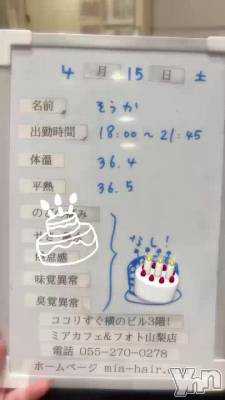 4 月 15 日 土
名前 そうか
出勤時間 18:00〜21:45
体温 36.4
平熱 36.5
のど
なし!
味覚異常
臭覚異常
ココリすぐ横のビル3階!
ミアカフェ&フォト山梨店
電話 055-270-0278
ホームページ mia-hair.